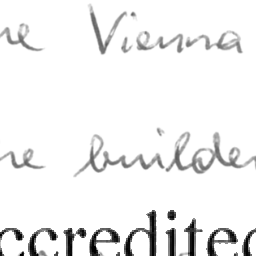 ne Vienna
ne builder
ccredited